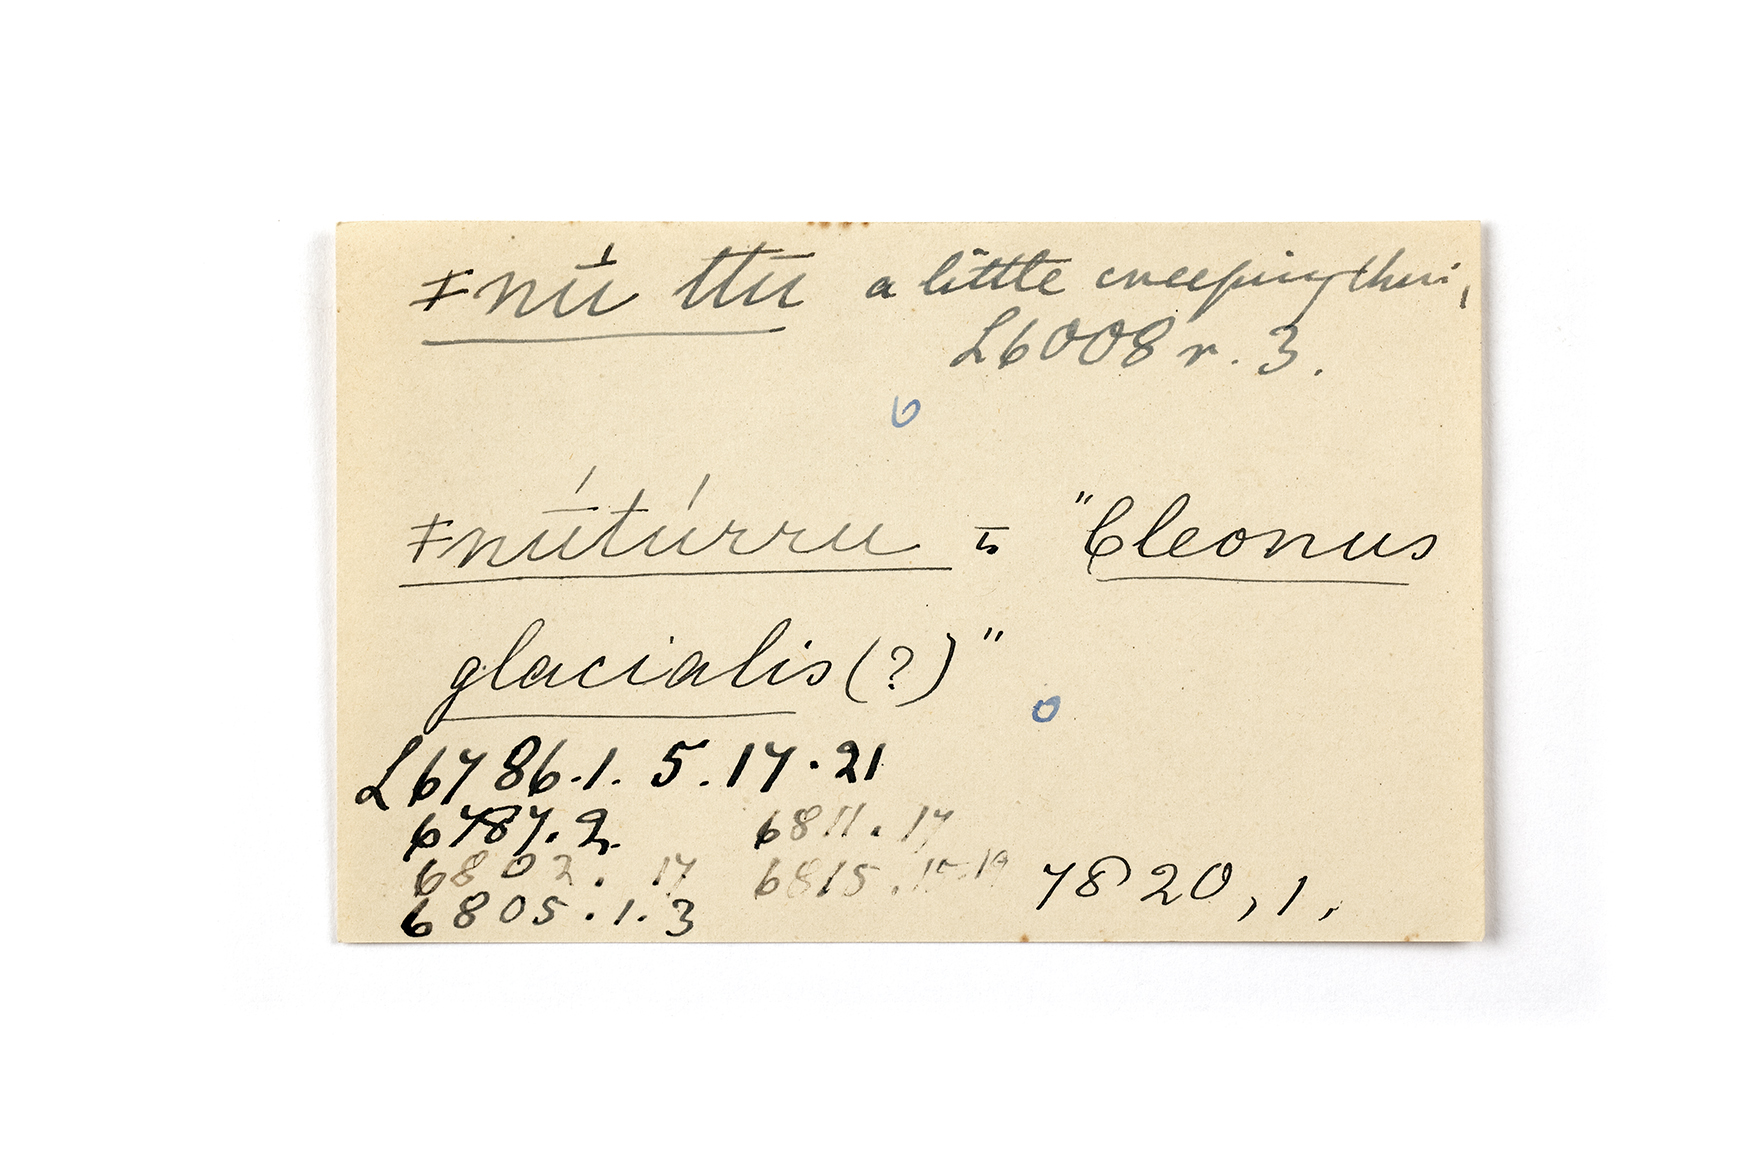 ǂnū́ ttū a little creeping thing
L6008 r. 3.
ǂnū́túrru is "Cleonus
glacialis (?)"
L6786.1. 5. 17. 21
6787. 2. 6811. 17
6802. 17 6815. 15.19 7820, 1,
6805. 1. 3